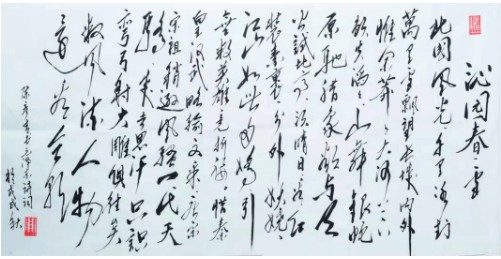 沁园春雪
北国风光千里冰封
万里雪飘望长城内外
惟余莽々大河上下
顿失滔々山舞银蛇
原驰蜡象欲与天
公试比高须晴日看红
装素裹分外妖娆
江山如此多娇引
无数英雄竞折腰惜秦
皇汉武略输文采唐宗
宋祖稍逊风骚一代天
骄成吉思汗只识
弯弓射大雕俱往矣
数风流人物
还看今朝
书毛主席诗词
於戊戌秋